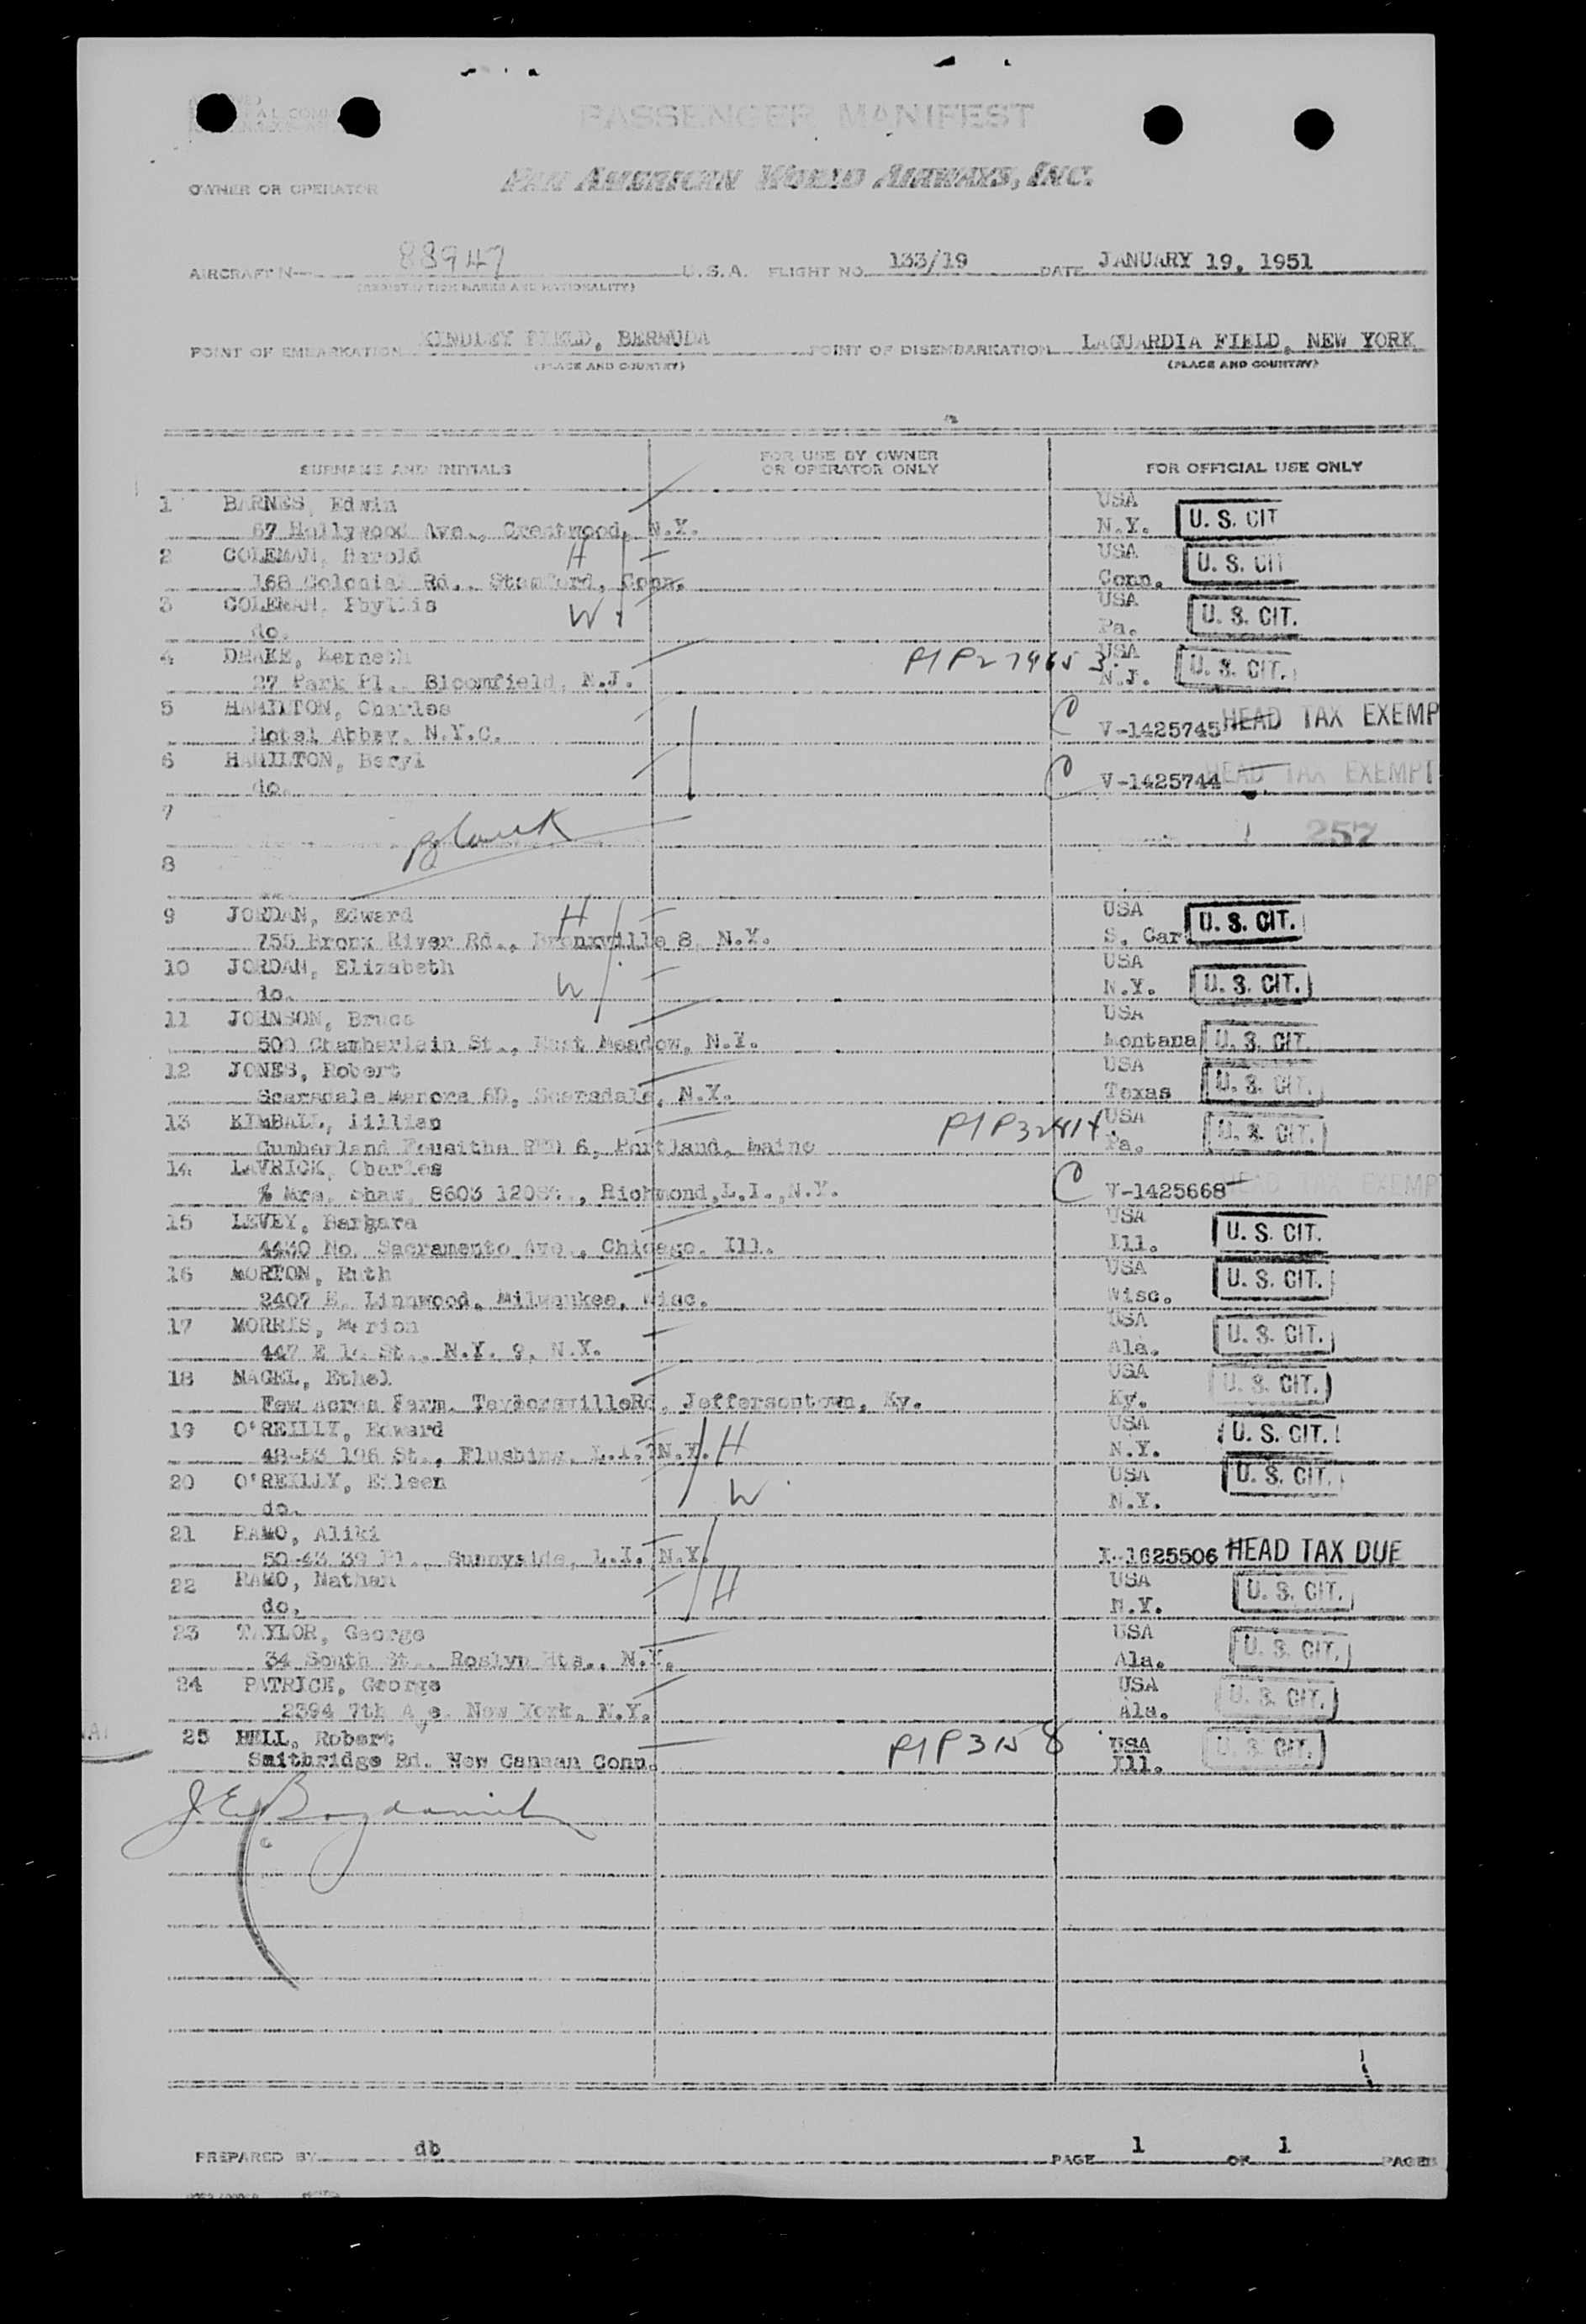 PASSENGER MANIFEST
OWNER OR OPERATOR PAN AMERICAN WORLD AIRWAYS, INC.
AIRCRAFT N 88947 U.S.A. FLIGHT NO. 133/19 DATE JANUARY 19, 1951
(REGISTRATION MARKS AND NATIONALITY)
POINT OF EMBARKATION KINDLEY FIELD, BERMUDA POINT OF DISEMBARKATION LAGUARDIA FIELD, NEW YORK
(PLACE AND COUNTRY) (PLACE AND COUNTRY)
SURNAME AND INITIALS FOR USE BY OWNER OR OPERATOR ONLY FOR OFFICIAL USE ONLY
1 BARNES, Edwin USA
67 Hollywood Ave., Crestwood, N.Y. N.Y. U. S. CIT
2 COLEMAN, Harold H USA
168 Colonial Rd., Stamford, Conn. Conn. U. S. CIT
3 COLEMAN, Phyllis W USA
do. Pa. U. S. CIT.
4 DRAKE, Kenneth USA
27 Park Pl., Bloomfield, N.J. N.J. U. S. CIT.
5 HAMILTON, Charles C
Hotel Abbey, N.Y.C. V-1425745 HEAD TAX EXEMP
6 HAMILTON, Beryl C
do. V-1425744 HEAD TAX EXEMPT
7 Blank 257
8
9 JORDAN, Edward H USA
755 Bronx River Rd., Bronxville 8, N.Y. S. Car. U. S. CIT.
10 JORDAN, Elizabeth W USA
do. N.Y. U. S. CIT.
11 JOHNSON, Bruce USA
500 Chamberlain St., East Meadow, N.Y. Montana U. S. CIT.
12 JONES, Robert USA
Scarsdale Manors 6D, Scarsdale, N.Y. Texas U. S. CIT.
13 KIMBALL, Lillian USA
Cumberland RFD 6, Portland, Maine Pa. U. S. CIT.
14 LAVRICK, Charles C
% Mrs. Shaw, 8603 120St., Richmond, L.I., N.Y. V-1425668 HEAD TAX EXEMP
15 LEVEY, Barbara USA
4430 No. Sacramento Ave., Chicago, Ill. Ill. U. S. CIT.
16 MORTON, Ruth USA
2407 E. Linnwood, Milwaukee, Wisc. Wisc. U. S. CIT.
17 MORRIS, Marion USA
447 E 14 St., N.Y. 9, N.Y. Ala. U. S. CIT.
18 NAGEL, Ethel USA
Few Acres Farm, TaylorsvilleRd, Jeffersontown, Ky. Ky. U. S. CIT.
19 O'REILLY, Edward H USA
48-53 196 St., Flushing, L.I., N.Y. N.Y. U. S. CIT.
20 O'REILLY, Eileen W USA
do. N.Y. U. S. CIT.
21 RAMO, Aliki
50-43 39 Pl., Sunnyside, L.I. N.Y. I-1625506 HEAD TAX DUE
22 RAMO, Nathan H USA
do. N.Y. U. S. CIT.
23 TAYLOR, George USA
34 South St., Roslyn Hts., N.Y. Ala. U. S. CIT.
24 PATRICK, George USA
2394 7th Ave. New York, N.Y. Ala. U. S. CIT.
25 BELL, Robert USA
Smithridge Rd. New Canaan Conn. Ill. U. S. CIT.
PREPARED BY db PAGE 1 OF 1 PAGES